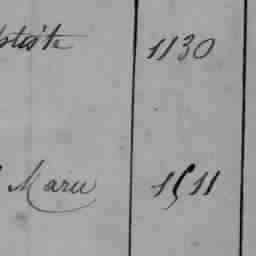 ptiste 1130
Marie 1511